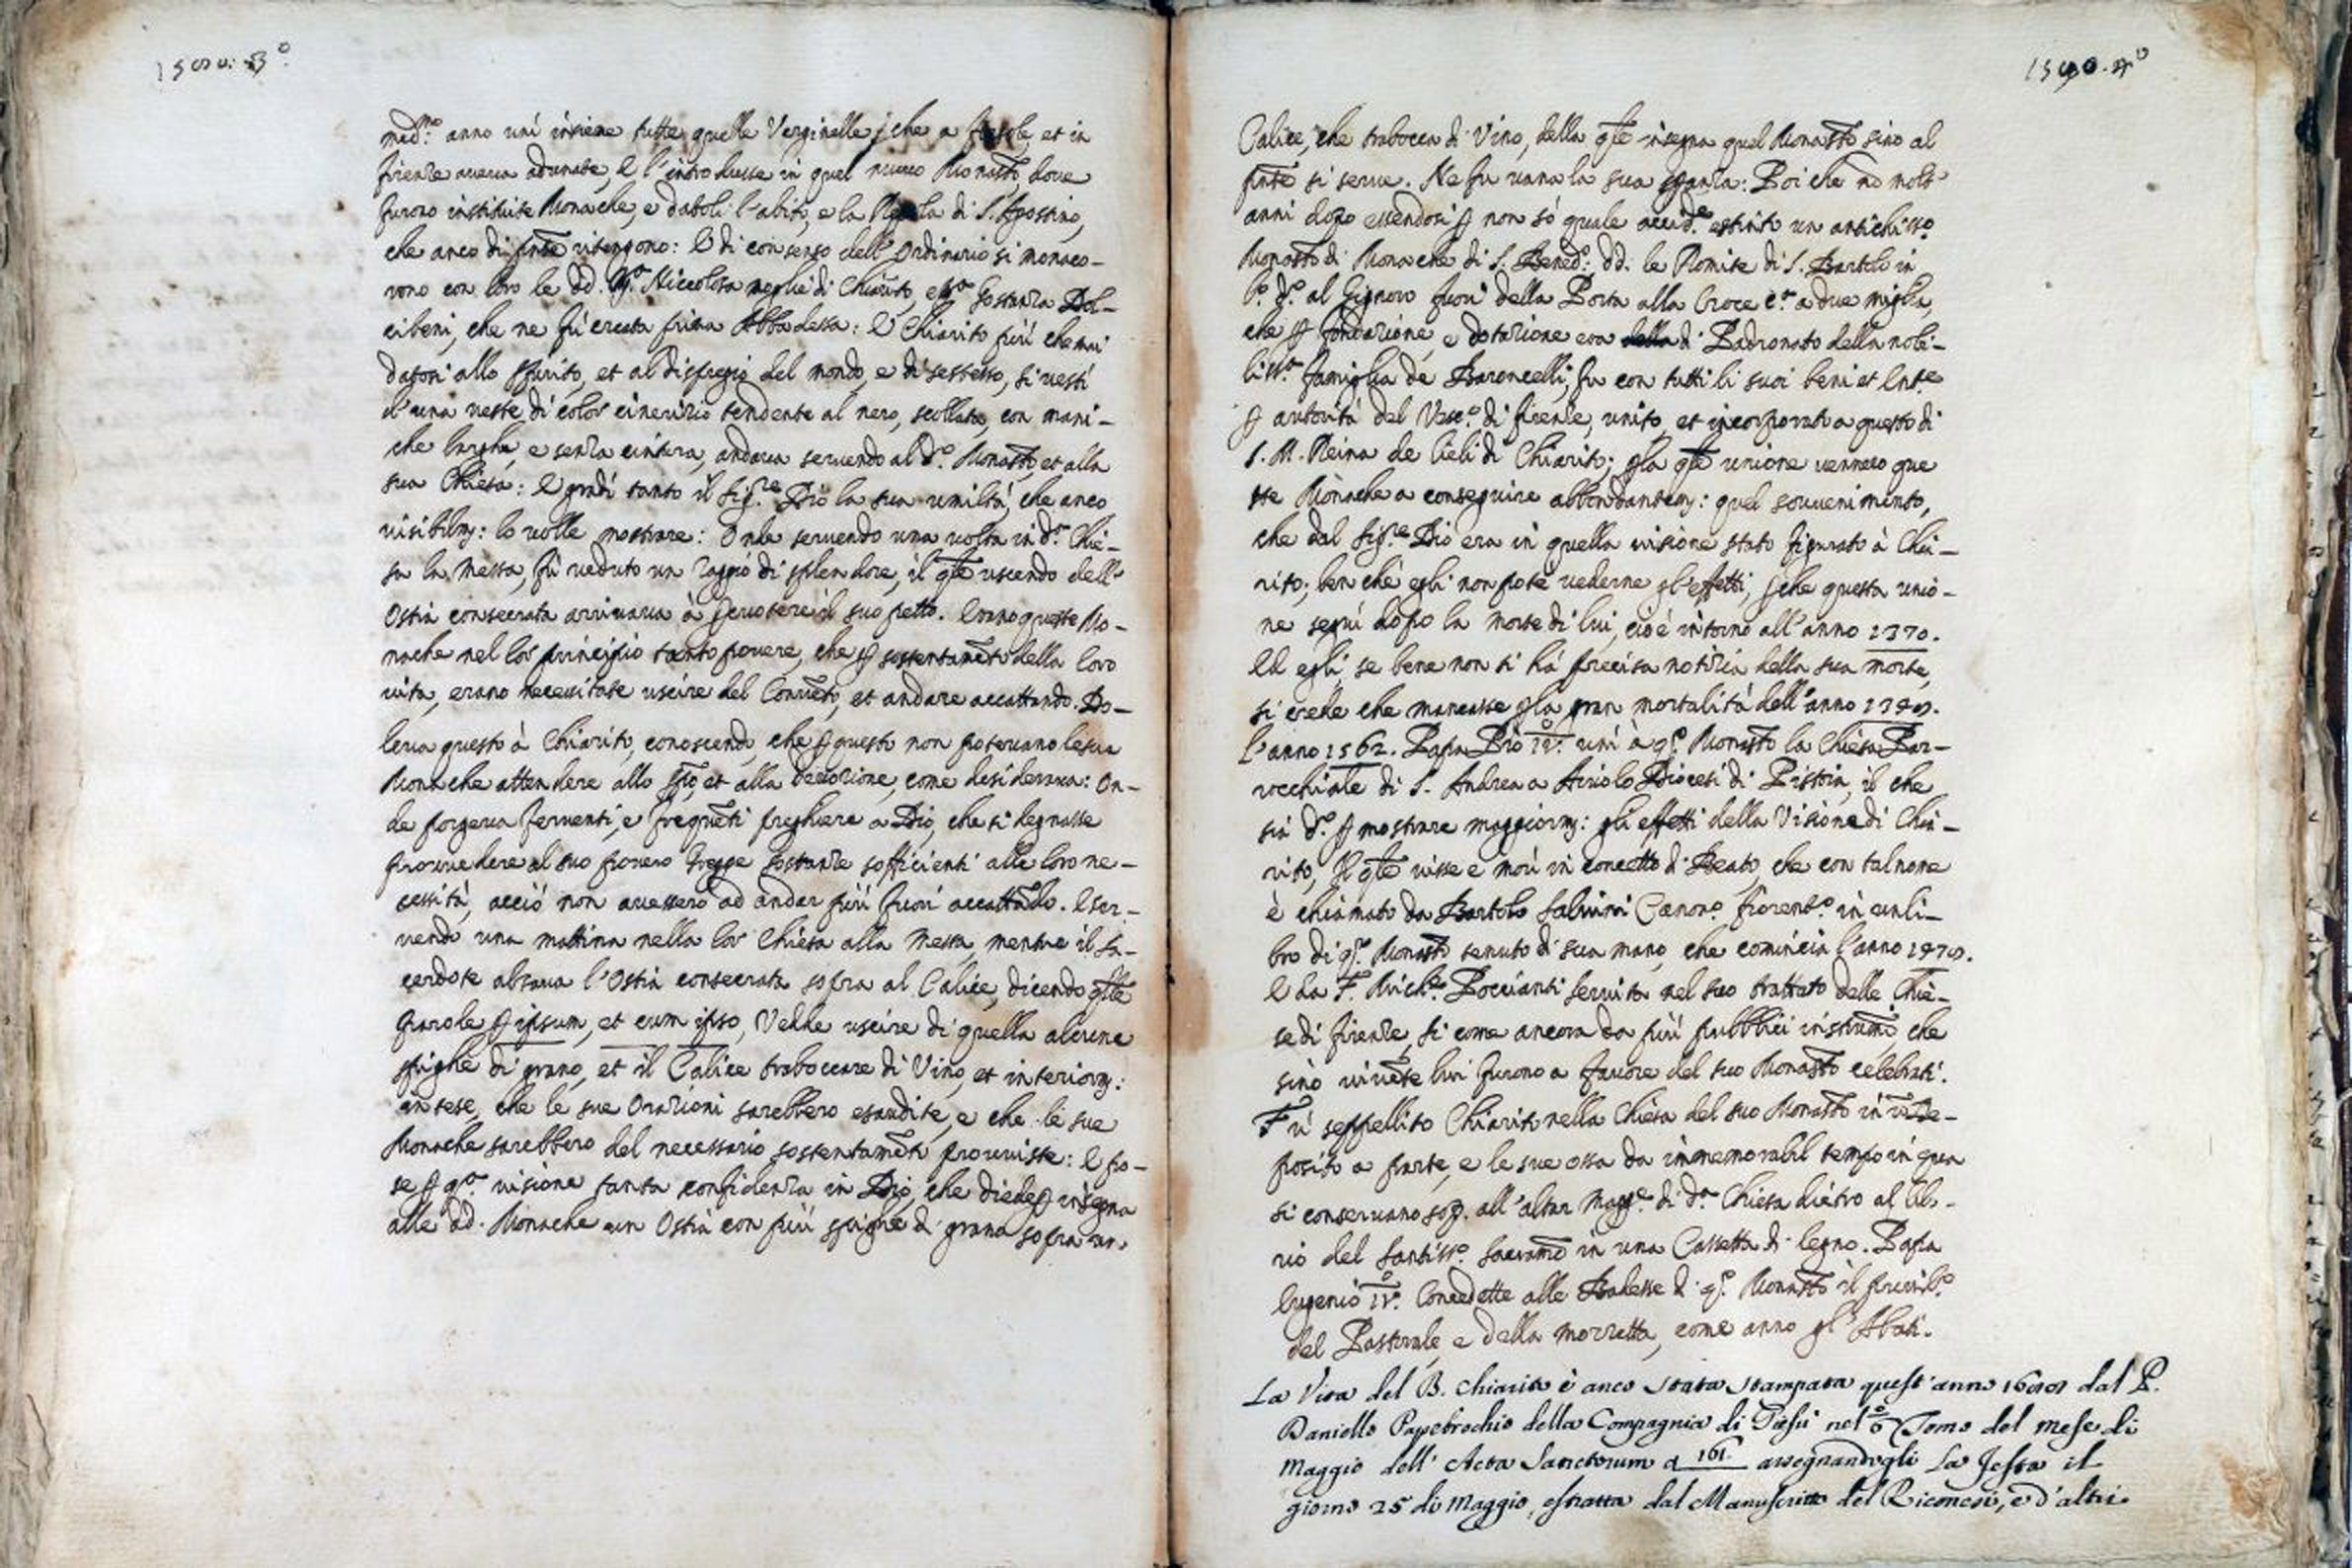 med.mo anno unì insieme tutte quelle Verginelle, che a fiesole, et in
firenze aueua adunate, e l'introdusse in quel nuouo Monasto, dove
furono instituite Monache, e datoli l'abito, e la Regola di S. Agostino,
che anco di pnte ritengono: E di consenso dell'Ordinario si monaco-
rono con loro le dd. Niccolosa moglie di Chiarito, e Gostanza Dol-
cibeni, che ne fù creata prima Abbadessa: E Chiarito più che mai
datosi allo spirito, et al dispregio del mondo, e di se stesso, si vestì
d'una veste di color cinerizio tendente al nero, scollata, con mani-
che larghe, e senza cintura, andaua seruendo al d.o Monasto, et alla
sua Chiesa: E gradì tanto il Sig.re Dio la sua umiltà, che anco
visibilmz: lo volle mostrare: Onde seruendo una uolta in d.a Chie-
sa la Messa, fù ueduto un raggio di splendore, il qle uscendo dell'
Ostia consecrata arriuaua à percotere il suo petto. Erano queste Mo-
nache nel lor principio tanto pouere, che p sostentamto della loro
uita, erano necessitate uscire del Conueto, et andare accattando. Do-
leua questo à Chiarito, conoscendo, che p questo non poteuano le sua
Monache attendere allo spto, et alla deuozione, come desideraua: On-
de porgeua feruenti, e frequeti preghiere a Dio, che si degnasse
prouuedere al suo pouero gregge sostanze sofficienti alle loro ne-
cessità, acciò non auessero ad andar più fuori accattado. E ser-
uendo una mattina nella lor Chiesa alla Messa, mentre il Sa-
cerdote alzaua l'Ostia consecrata sopra al Calice, dicendo qlle
parole p ipsum, et cum ipso, Vedde uscire di quella alcune
spighe di grano, et il Calice traboccare di Vino, et interiormz:
intese, che le sue Orazioni sarebbero esaudite, e che le sue
Monache sarebbero del necessario sostentameto prouuiste: E po-
se p q.a visione tanta confidenza in Dio, che diede p insegna
alle dd. Monache un Ostia con più spighe di grano sopra un
Calice, che trabocca di Vino, della qle insegna quel Monasto sino al
pnte si serue. Ne fu uana la sua spanza: Poi che nō molt
anni dopo essendosi p non sò quale accid.e estinto un antichiss.o
Monasto di Monache di S. Bened.o dd. le Romite di S. Bartolo in
l.o d.o al Gignoro fuori della Porta alla Croce c.a a due miglia,
che p fondazione, e dotazione era di Padronato della nobi-
liss.a famiglia de Baroncelli, fu con tutti li suoi beni et Entte
p autorità del Vesc.o di firenze, unito, et incorporato a questo di
S. M. Reina de Cieli di Chiarito; p la qle unione uennero que
ste Monache a conseguire abbondantemz: quel souuenimento,
che dal Sig.re Dio era in quella uisione stato figurato à Chia-
rito; ben chè egli non potè uederne gl'effetti, pche questa unio-
ne seguì dopo la morte di lui, cioè intorno all'anno 1370.
Ed egli, se bene non si hà precisa notizia della sua morte,
si crede che mancasse p la gran mortalità dell'anno
l'anno 1562. Papa Pio IV.o unì à q.o Monasto la Chiesa Par-
rocchiale di S. Andrea a Diocesi di Pistoia, il che
sia d.o p mostrare maggiormz: gli effetti della Visione di Chia-
rito, Il qle uisse e morì in concetto di Beato, che con tal nome
è chiamato da Bartolo Saluini Canon.o fiorent.o in un li-
bro di q.o Monasto tenuto di sua mano, che comincia l'anno
E da F. Mich.le Poccianti Seruita nel suo trattato delle Chie-
se di firenze, si come ancora da più pubblici instrumi, che
sino uiuete lui furono a fauore del suo Monasto celebrati.
Fù seppellito Chiarito nella Chiesa del suo Monasto in vn De-
posito a parte, e le sue ossa da immemorabil tempo in qua
si conseruano sop. all'altar Magg.e di d.a Chiesa dietro al Cibo-
rio del Santiss.o Sacramo in una Cassetta di legno. Papa
Eugenio IV.o Concedette alle Badesse di q.o Monasto il priuil.o
del Pastorale, e della mozzetta, come anno gl'Abati.
La Vita del B. Chiarito è anco stata stampata quest'anno dal P.
Daniello Papebrochio della Compagnia di Giesù nel 6.o Tomo del mese di
Maggio dell'Acta Sanctorum a 161. assegnandogli la festa il
giorno 25 di Maggio, estratta dal Manuscritto del Riconesi, e d'altri.